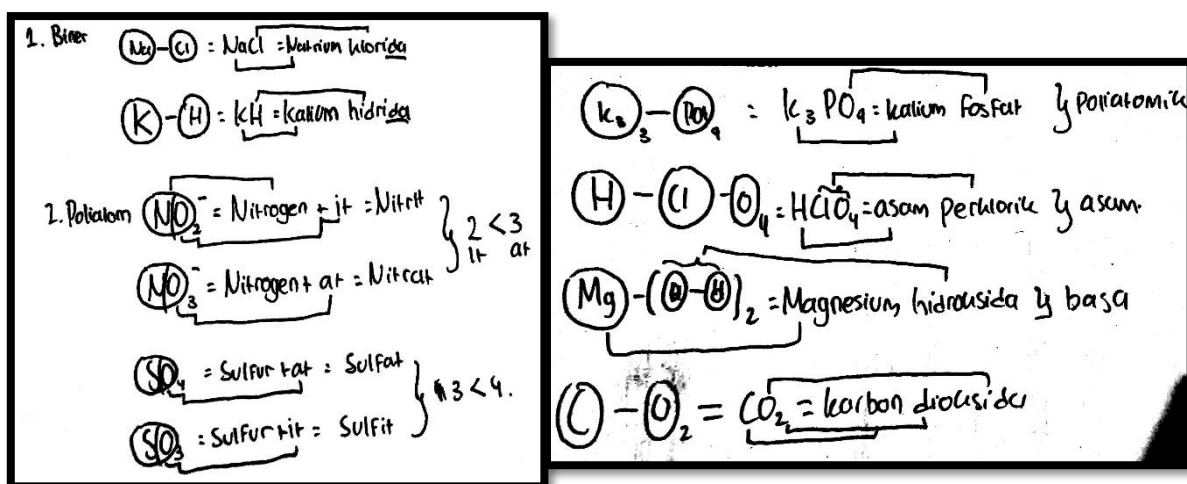 1. Biner Na-Cl = NaCl = Natrium klorida
K-H = KH = kalium hidrida
2. Poliatom NO₂⁻ = Nitrogen + it = Nitrit
2 < 3
it at
NO₃⁻ = Nitrogen + at = Nitrat
SO₄ = Sulfur + at = Sulfat
3 < 4.
SO₃ = Sulfur + it = Sulfit
K₃ 3 - PO₄ 4 = K₃PO₄ = kalium fosfat } poliatomik
H - Cl - O₄ = HClO₄ = asam perklorik } asam.
Mg - (O-H)₂ = Magnesium hidroksida } basa
C - O₂ = CO₂ = karbon dioksida